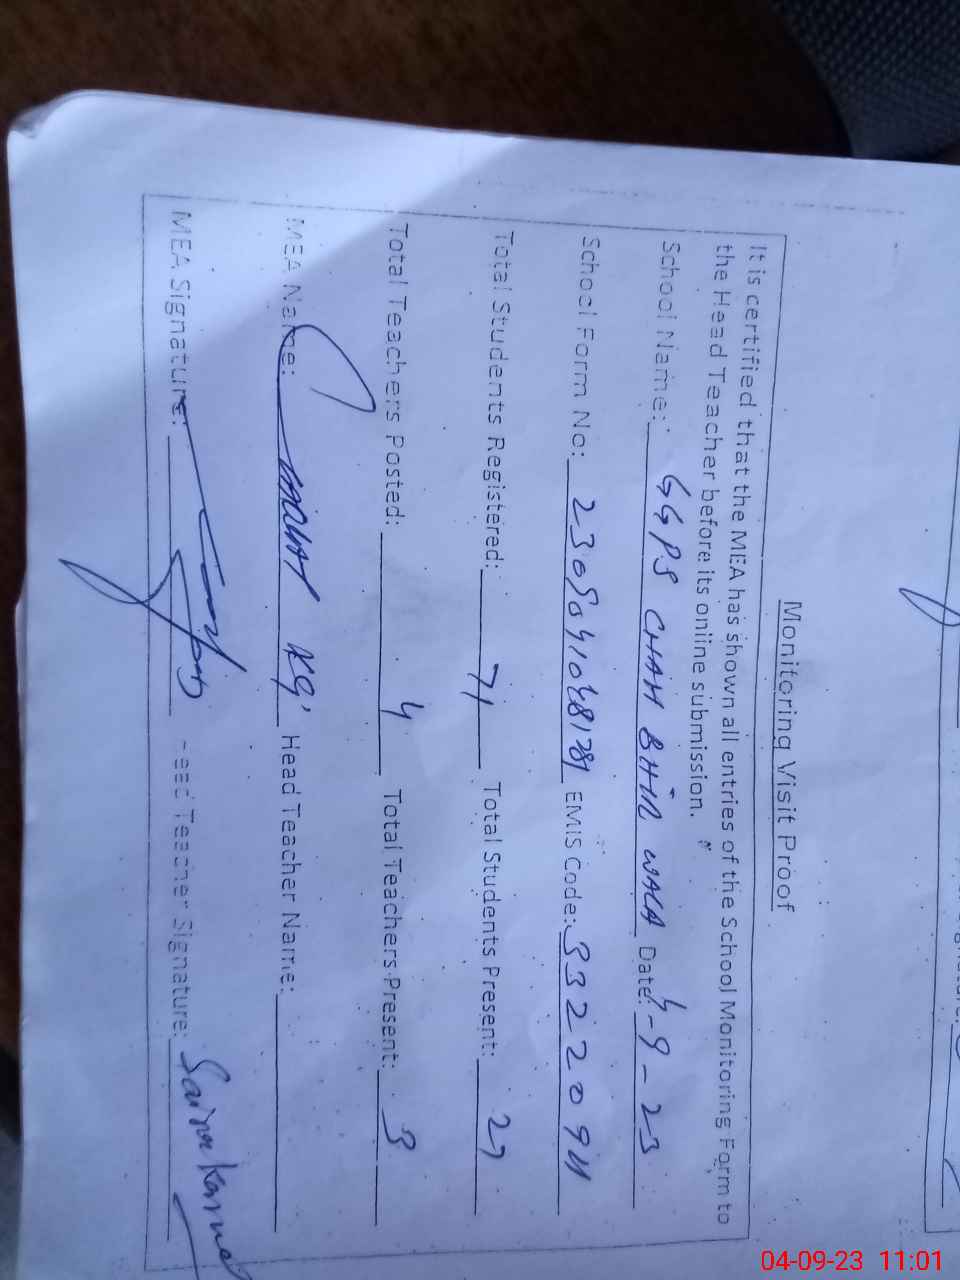 Monitoring Visit Proof
It is certified that the MEA has shown all entries of the School Monitoring Form to
the Head Teacher before its online submission.
School Name: GGPS CHAH BHIR WALA Date: 4-9-23
School Form No: EMIS Code:
Total Students Registered: 71 Total Students Present: 27
Total Teachers Posted: 4 Total Teachers Present: 3
MEA Name: Head Teacher Name:
MEA Signature: Head Teacher Signature:
04-09-23 11:01